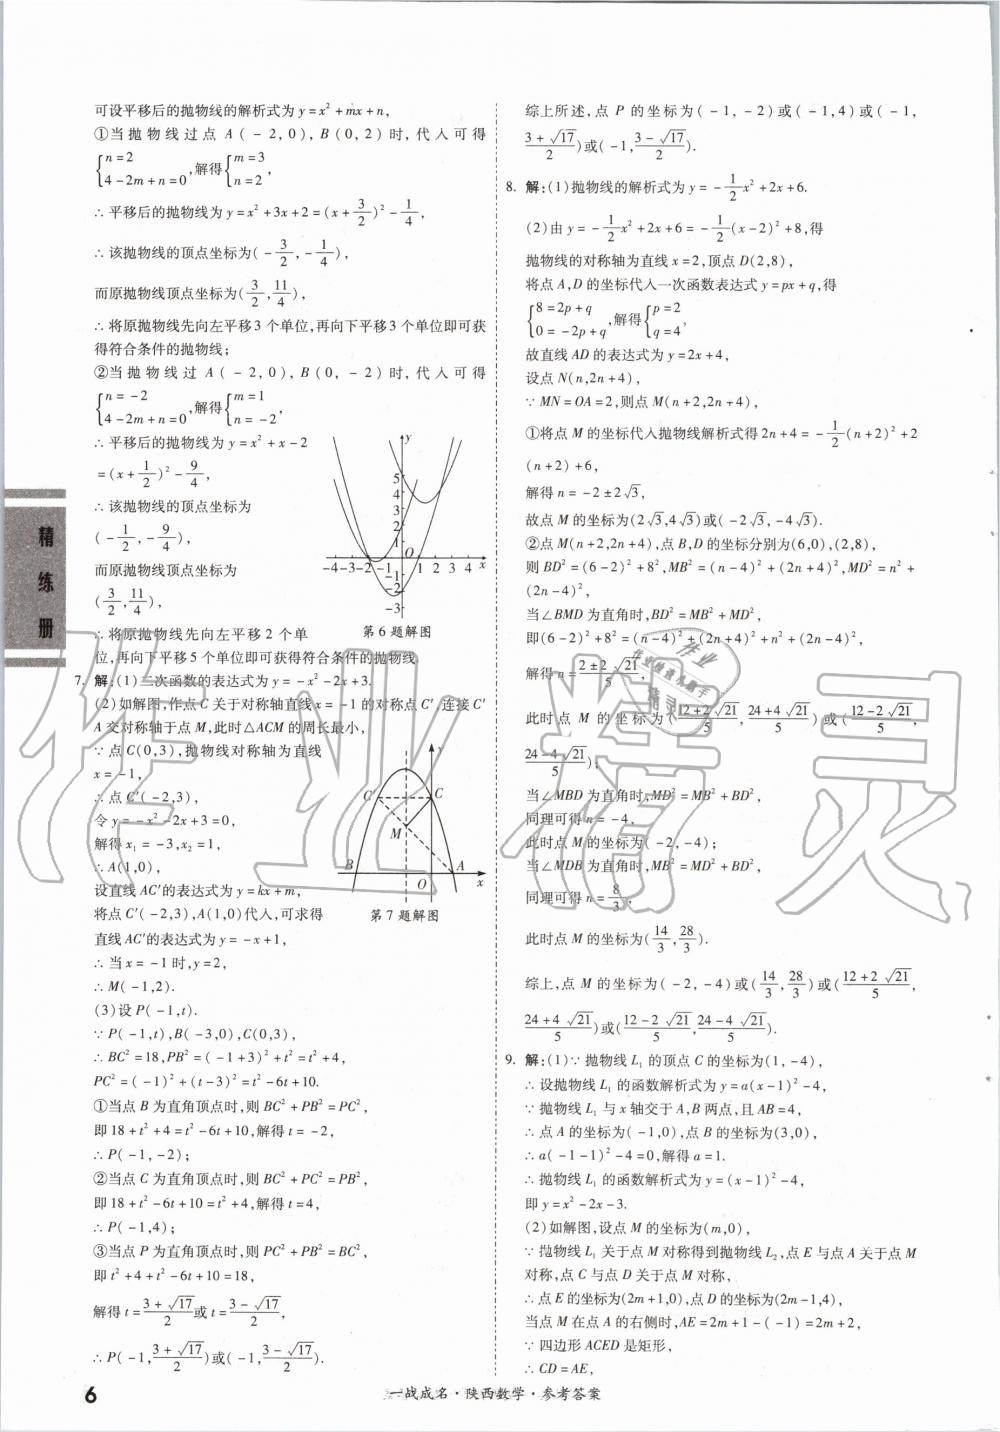 可设平移后的抛物线的解析式为 y=x²+mx+n,
①当抛物线过点 A(-2,0), B(0,2)时,代入可得
{n=2
4-2m+n=0,解得{m=3
n=2,
∴平移后的抛物线为 y=x²+3x+2=(x+3/2)²-1/4,
∴该抛物线的顶点坐标为(-3/2,-1/4),
而原抛物线顶点坐标为(3/2,11/4),
∴将原抛物线先向左平移3个单位,再向下平移3个单位即可获
得符合条件的抛物线;
②当抛物线过 A(-2,0), B(0,-2)时,代入可得
{n=-2
4-2m+n=0,解得{m=1
n=-2,
∴平移后的抛物线为 y=x²+x-2
=(x+1/2)²-9/4,
∴该抛物线的顶点坐标为
(-1/2,-9/4),
而原抛物线顶点坐标为
(3/2,11/4),
∴将原抛物线先向左平移2个单
位,再向下平移5个单位即可获得符合条件的抛物线.
y
5
4
3
2
1
O
-4-3-2-1 1 2 3 4 x
-1
-2
-3
第6题解图
7. 解:(1)二次函数的表达式为 y=-x²-2x+3.
(2)如解图,作点C关于对称轴直线x=-1的对称点C′,连接C′
A交对称轴于点M,此时△ACM的周长最小,
∵点C(0,3),抛物线对称轴为直线
x=-1,
∴点C′(-2,3),
令 y=-x²-2x+3=0,
解得 x₁=-3,x₂=1,
∴A(1,0),
设直线AC′的表达式为 y=kx+m,
将点C′(-2,3),A(1,0)代入,可求得
直线AC′的表达式为 y=-x+1,
∴当 x=-1时,y=2,
∴M(-1,2).
y
C′ C
M
B O A x
第7题解图
(3)设P(-1,t).
∵P(-1,t),B(-3,0),C(0,3),
∴BC²=18,PB²=(-1+3)²+t²=t²+4,
PC²=(-1)²+(t-3)²=t²-6t+10.
①当点B为直角顶点时,则BC²+PB²=PC²,
即18+t²+4=t²-6t+10,解得t=-2,
∴P(-1,-2);
②当点C为直角顶点时,则BC²+PC²=PB²,
即18+t²-6t+10=t²+4,解得t=4,
∴P(-1,4);
③当点P为直角顶点时,则PC²+PB²=BC²,
即t²+4+t²-6t+10=18,
解得t=(3+√17)/2或t=(3-√17)/2,
∴P(-1,(3+√17)/2)或(-1,(3-√17)/2).
综上所述,点P的坐标为(-1,-2)或(-1,4)或(-1,
(3+√17)/2)或(-1,(3-√17)/2).
8. 解:(1)抛物线的解析式为 y=-1/2x²+2x+6.
(2)由 y=-1/2x²+2x+6=-1/2(x-2)²+8,得
抛物线的对称轴为直线x=2,顶点D(2,8),
将点A,D的坐标代入一次函数表达式y=px+q,得
{8=2p+q
0=-2p+q,解得{p=2
q=4,
故直线AD的表达式为 y=2x+4,
设点N(n,2n+4),
∵MN=OA=2,则点M(n+2,2n+4),
①将点M的坐标代入抛物线解析式得2n+4=-1/2(n+2)²+2
(n+2)+6,
解得 n=-2±2√3,
故点M的坐标为(2√3,4√3)或(-2√3,-4√3).
②点M(n+2,2n+4),点B,D的坐标分别为(6,0),(2,8),
则BD²=(6-2)²+8²,MB²=(n-4)²+(2n+4)²,MD²=n²+
(2n-4)²,
当∠BMD为直角时,BD²=MB²+MD²,
即(6-2)²+8²=(n-4)²+(2n+4)²+n²+(2n-4)²,
解得n=(2±2√21)/5,
此时点M的坐标为((12+2√21)/5,(24+4√21)/5)或((12-2√21)/5,
(24-4√21)/5);
当∠MBD为直角时,MD²=MB²+BD²,
同理可得n=-4,
此时点M的坐标为(-2,-4);
当∠MDB为直角时,MB²=MD²+BD²,
同理可得n=8/3,
此时点M的坐标为(14/3,28/3).
综上,点M的坐标为(-2,-4)或(14/3,28/3)或((12+2√21)/5,
(24+4√21)/5)或((12-2√21)/5,(24-4√21)/5).
9. 解:(1)∵抛物线L₁的顶点C的坐标为(1,-4),
∴设抛物线L₁的函数解析式为 y=a(x-1)²-4,
∵抛物线L₁与x轴交于A,B两点,且AB=4,
∴点A的坐标为(-1,0),点B的坐标为(3,0),
∴a(-1-1)²-4=0,解得a=1.
∴抛物线L₁的函数解析式为 y=(x-1)²-4,
即y=x²-2x-3.
(2)如解图,设点M的坐标为(m,0),
∵抛物线L₁关于点M对称得到抛物线L₂,点E与点A关于点M
对称,点C与点D关于点M对称,
∴点E的坐标为(2m+1,0),点D的坐标为(2m-1,4),
当点M在点A的右侧时,AE=2m+1-(-1)=2m+2,
∵四边形ACED是矩形,
∴CD=AE,
精练册
作业精灵
6
一战成名·陕西数学·参考答案